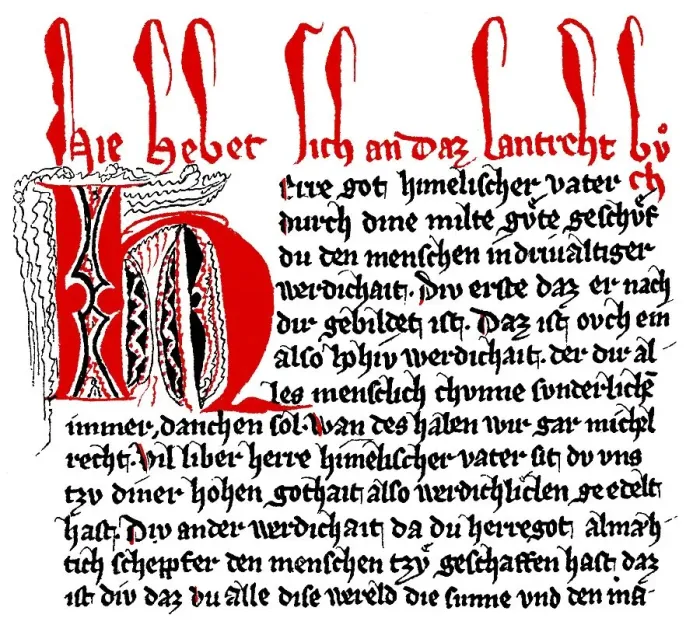 Hie hebet sich an daz lantreht bůch
Herre got himelischer vater
durch dine milte gv̊te geschv̊f
du den menschen in drivaltiger
werdichait. Div erste daz er nach
dir gebildet ist. Daz ist ovch ein
also hohiv werdichait. der dir al
les mensclich chvnne svnderlichē
immer danchen sol. Wan des haben wir gar michel
recht. Vil liber herre himelischer vater sit dv vns
tzv diner hohen gothait also werdichlichen geedelt
hast. Div ander werdichait da du herre got almah-
tich schepfer den menschen tzv̊ geschaffen hast daz
ist div daz du alle dise wereld die sunne vnd den ma-